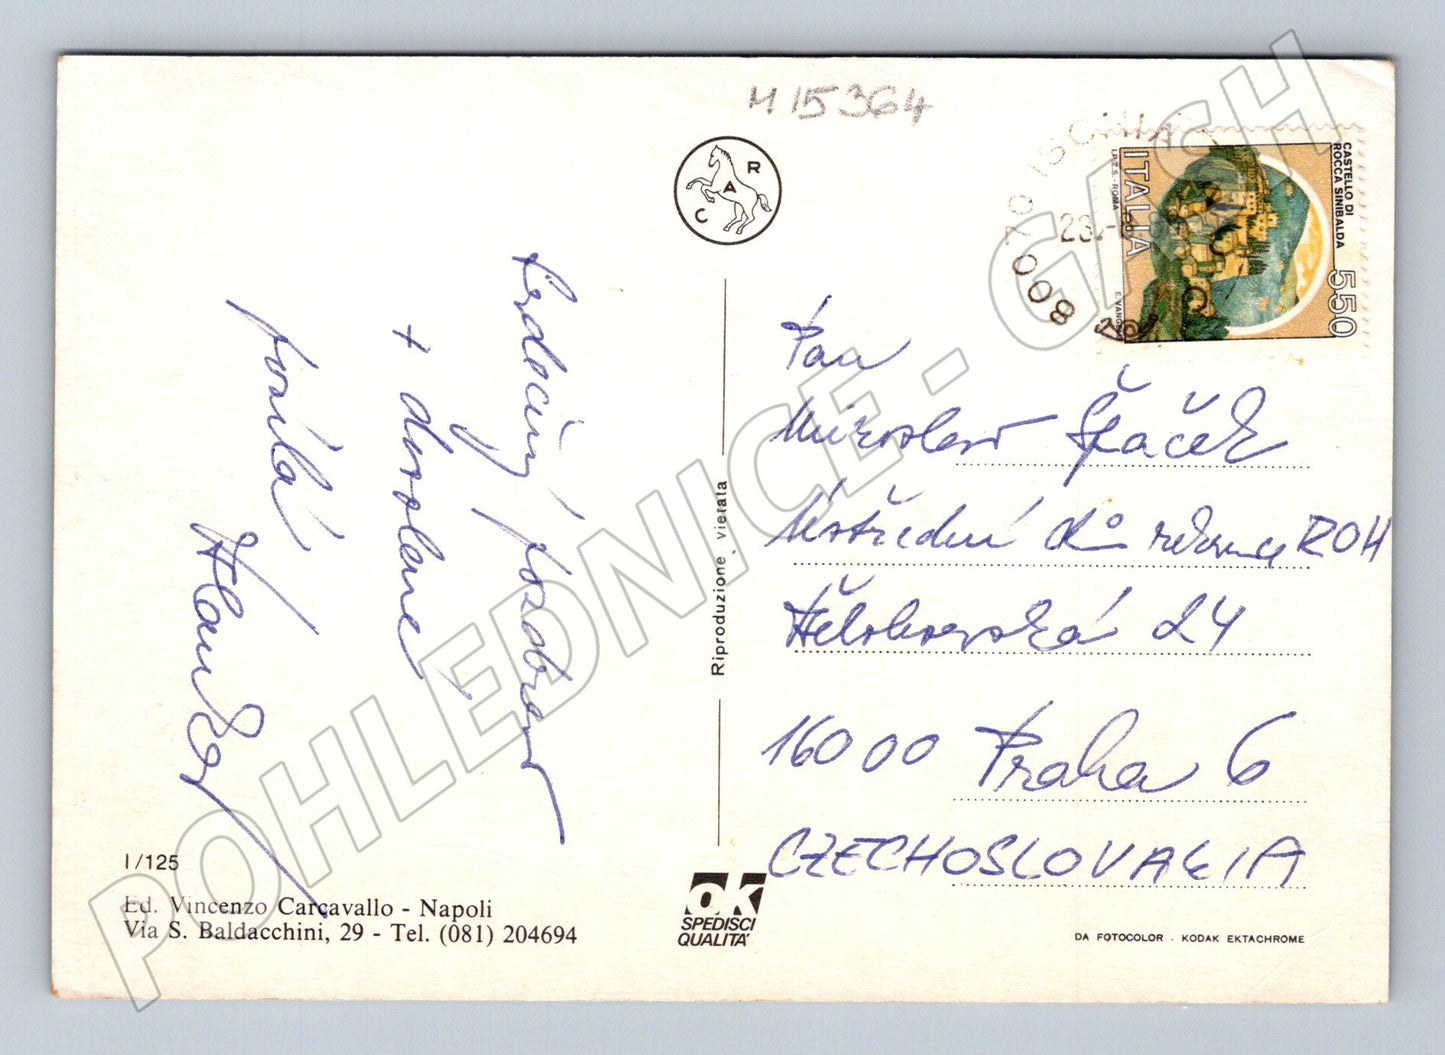 M 15364
R
A
C
80070 ISCHIA
ITALIA
I.P.Z.S. - ROMA
CASTELLO DI
ROCCA SINIBALDA
550
Srdečný pozdrav
z dovolené
posílá
Pan
Miroslav Špaček
Ústřední dům ROH
Bělohorská 24
16000 Praha 6
CZECHOSLOVAKIA
Riproduzione vietata
I/125
Ed. Vincenzo Carcavallo - Napoli
Via S. Baldacchini, 29 - Tel. (081) 204694
OK
SPEDISCI
QUALITA'
DA FOTOCOLOR - KODAK EKTACHROME
POHLEDNICE - GACH